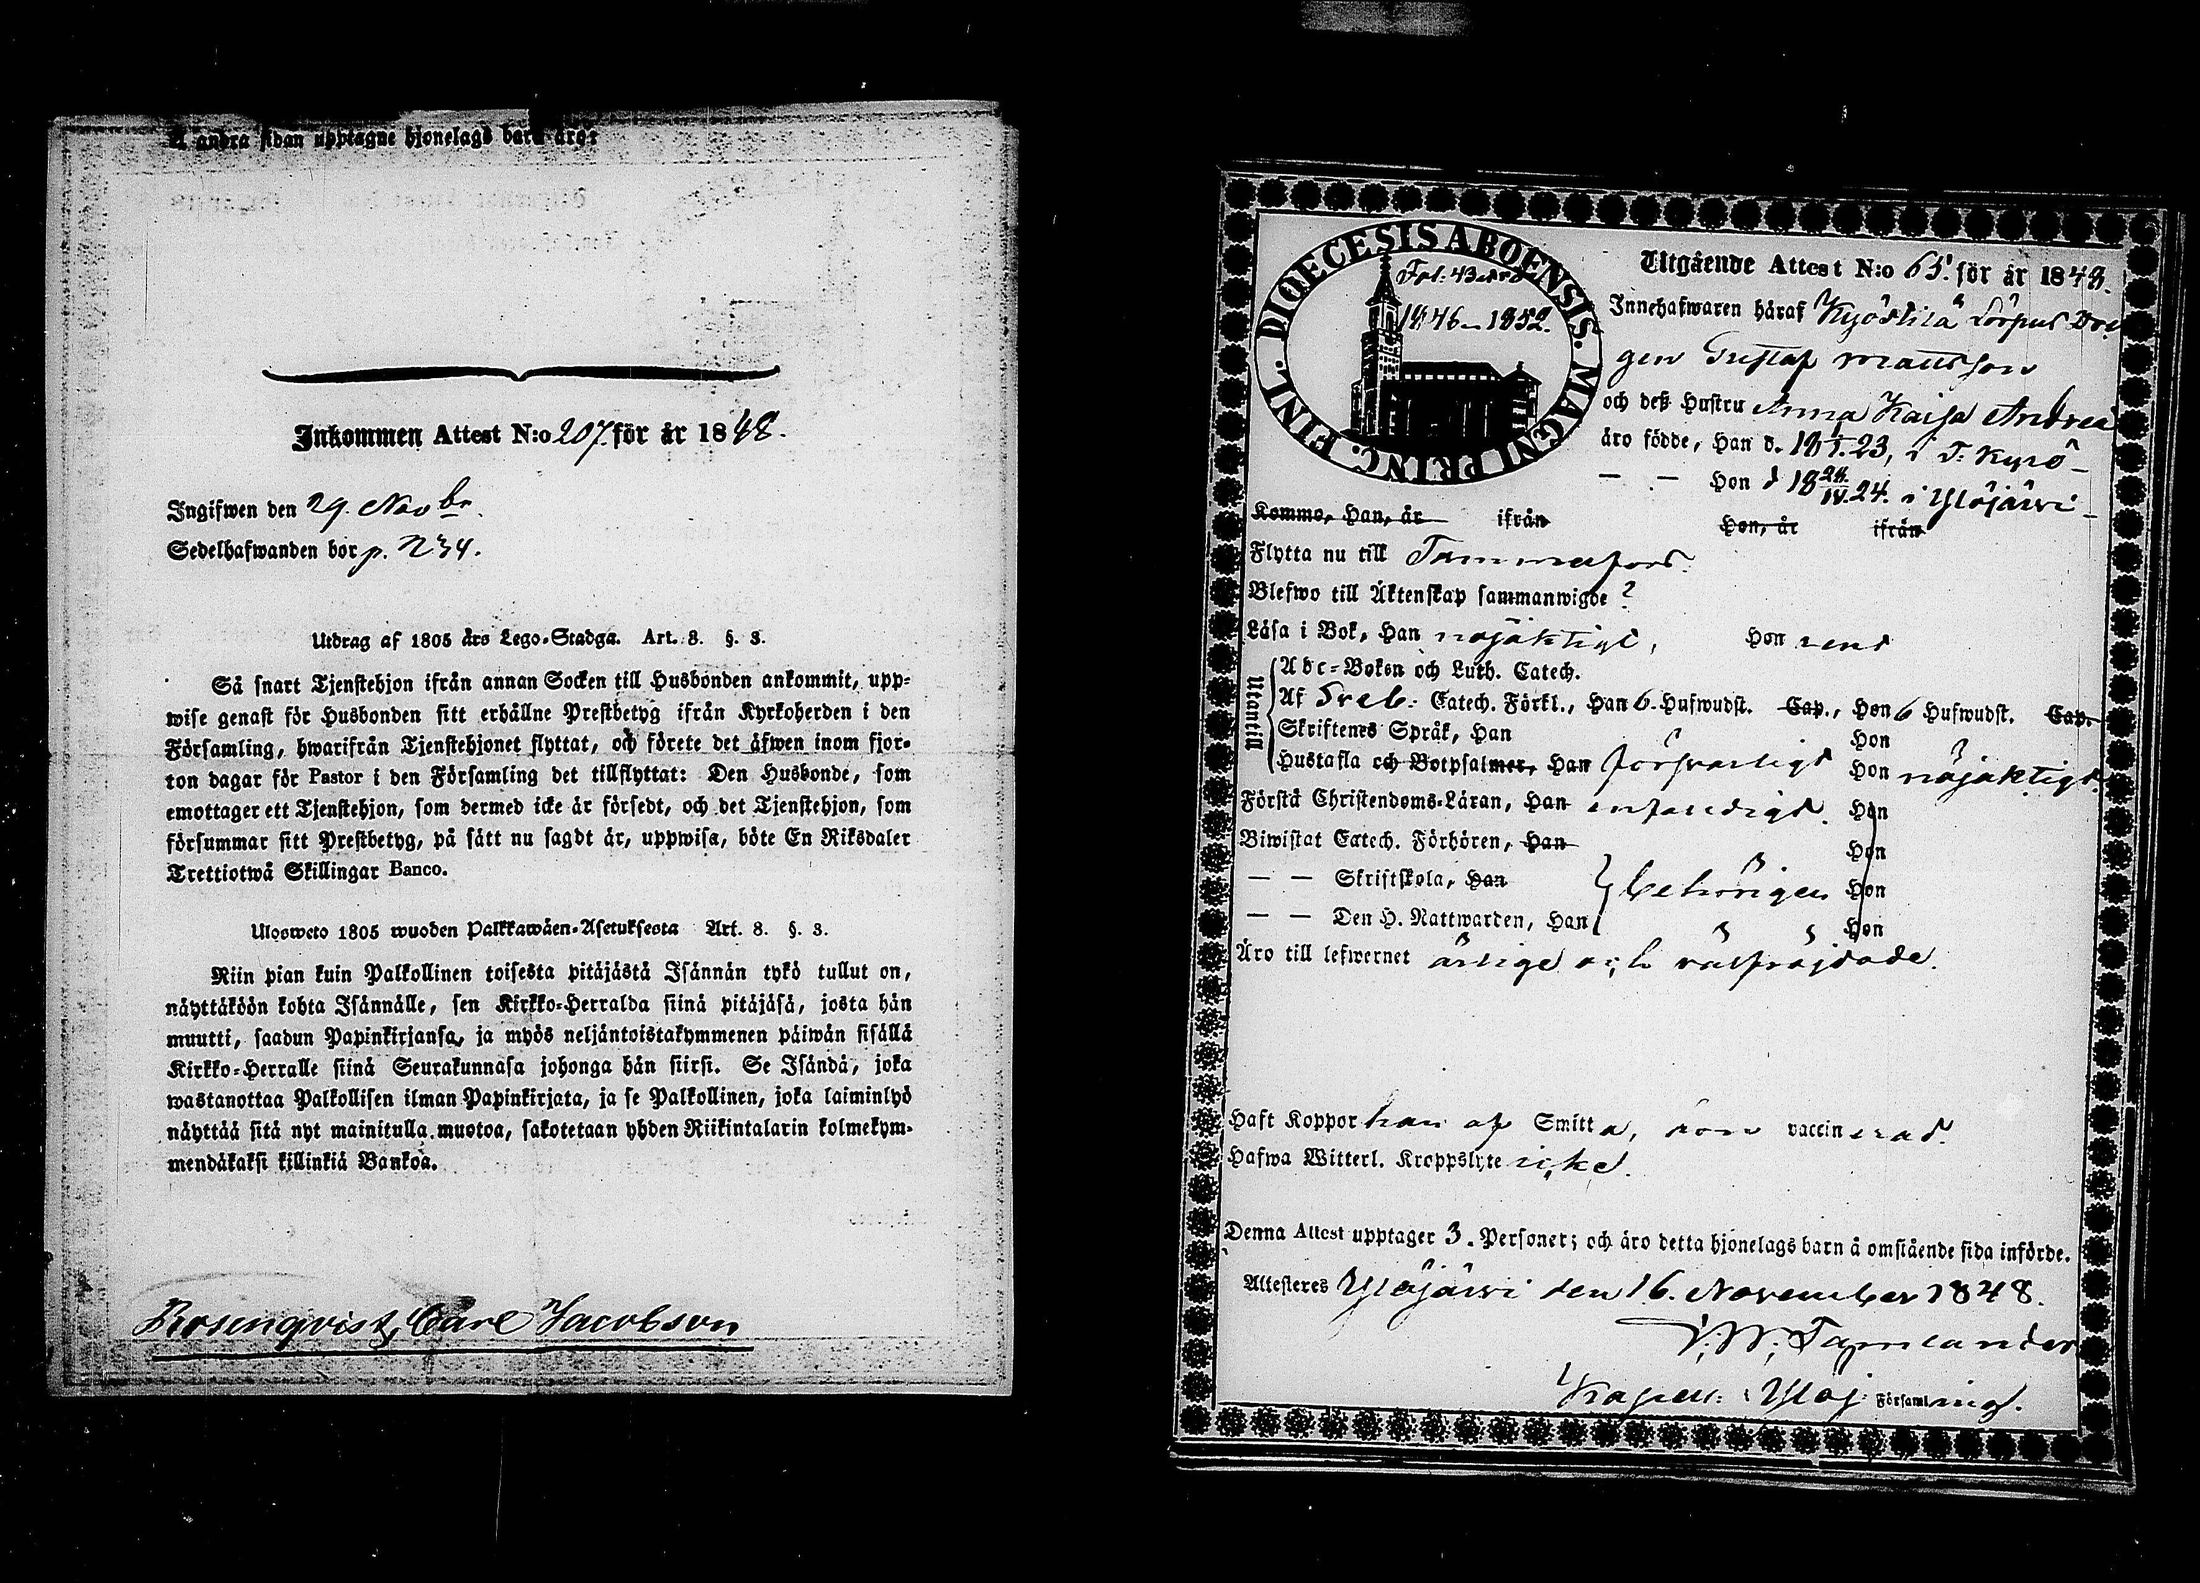 Å andra sidan upptagne hjonelags barn äro:
Inkommen Attest N:o 207 för år 1848.
Ingifwen den 29. Novbr.
Sedelhafwanden bor p. 234.
Utdrag af 1805 års Lego-Stadga. Art. 8. §. 3.
Så snart Tjenstehjon ifrån annan Socken till Husbonden ankommit, upp-
wise genast för Husbonden sitt erhållne Prestbetyg ifrån Kyrkoherden i den
Församling, hwarifrån Tjenstehjonet flyttat, och förete det äfwen inom fjor-
ton dagar för Pastor i den Församling det tillflyttat: Den Husbonde, som
emottager ett Tjenstehjon, som dermed icke är försedt, och det Tjenstehjon, som
försummar sitt Prestbetyg, på sätt nu sagdt är, uppwisa, böte En Riksdaler
Trettiotwå Skillingar Banco.
Ulosweto 1805 wuoden Palkkawäen-Asetuksesta Art. 8. §. 3.
Niin pian kuin Palkollinen toisesta pitäjästä Isännän tykö tullut on,
näyttäköön kohta Isännälle, sen Kirkko-Herralda siinä pitäjäsä, josta hän
muutti, saadun Papinkirjansa, ja myös neljäntoistakymmenen päiwän sisällä
Kirkko-Herralle siinä Seurakunnasa johonga hän siirsi. Se Isändä, joka
wastanottaa Palkollisen ilman Papinkirjata, ja se Palkollinen, joka laiminlyö
näyttää sitä nyt mainitulla muotoa, sakotetaan yhden Riikintalarin kolmekym-
mendäkaksi killinkiä Bankoa.
Rosenqvist, Carl Jacobson
FINL. DIOECESIS ABOENSIS. MAGNI PRINC.
Fol: 43
1846-1852.
Utgående Attest N:o 65. för år 1848.
Innehafwaren häraf Kyöstilä Sörpus Dre
gen Gustaf Mattsson
och deß Hustru Anna Kaisa Andrea
äro födde, Han d. 18 1/1. 23, i T. Kyrö-
— — Hon d 18 24/IV. 24. i Ylöjärvi-
Kommo, Han, år ifrån Hon, år ifrån
Flytta nu till Tammefors.
Blefwo till Äktenskap sammanwigde ?
Läsa i Bok, Han nöjaktigt, Hon rent
Utantill
Abc-Boken och Luth. Catech.
Af Sveb: Catech. Förkl., Han 6. Hufwudst. Cap., Hon 6 Hufwudst. Cap.
Skriftenes Språk, Han Hon
Hustafla och Botpsalmer, Han försvarligt Hon nöjaktigt.
Förstå Christendoms-Läran, Han enfaldigt. Hon
Biwistat Catech. Förhören, Han Hon
— — Skriftskola, Han behörigen Hon
— — Den H. Nattwarden, Han Hon
Äro till lefwernet ärlige och välfräjdade.
Haft Koppor han af Smitta, hon vaccinerad.
Hafwa Witterl. Kroppslyte icke.
Denna Attest upptager 3. Personer; och äro detta hjonelags barn å omstående sida införde.
Attesteres Ylöjärvi den 16. November 1848.
Kapell: i Ylöj: Församling.